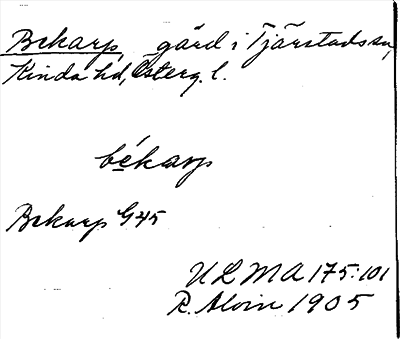 Bekarp, gård i Tjärstads sn,
Kinda hd, Österg. l.
békarp
Bekarp G45
ULMA 175:101
R. Alvin 1905